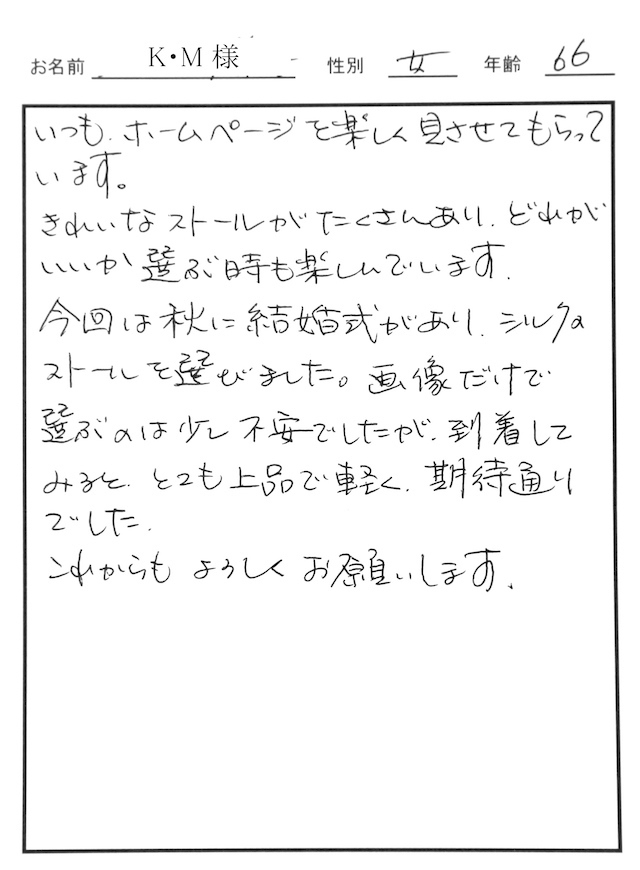 お名前 K・M 様 性別 女 年齢 66
いつも、ホームページを楽しく見させてもらって
います。
きれいなストールがたくさんあり、どれが
いいか選ぶ時も楽しんでいます。
今回は秋に結婚式があり、シルクの
ストールを選びました。画像だけで
選ぶのは少し不安でしたが、到着して
みると、とても上品で軽く、期待通り
でした。
これからもよろしくお願いします。